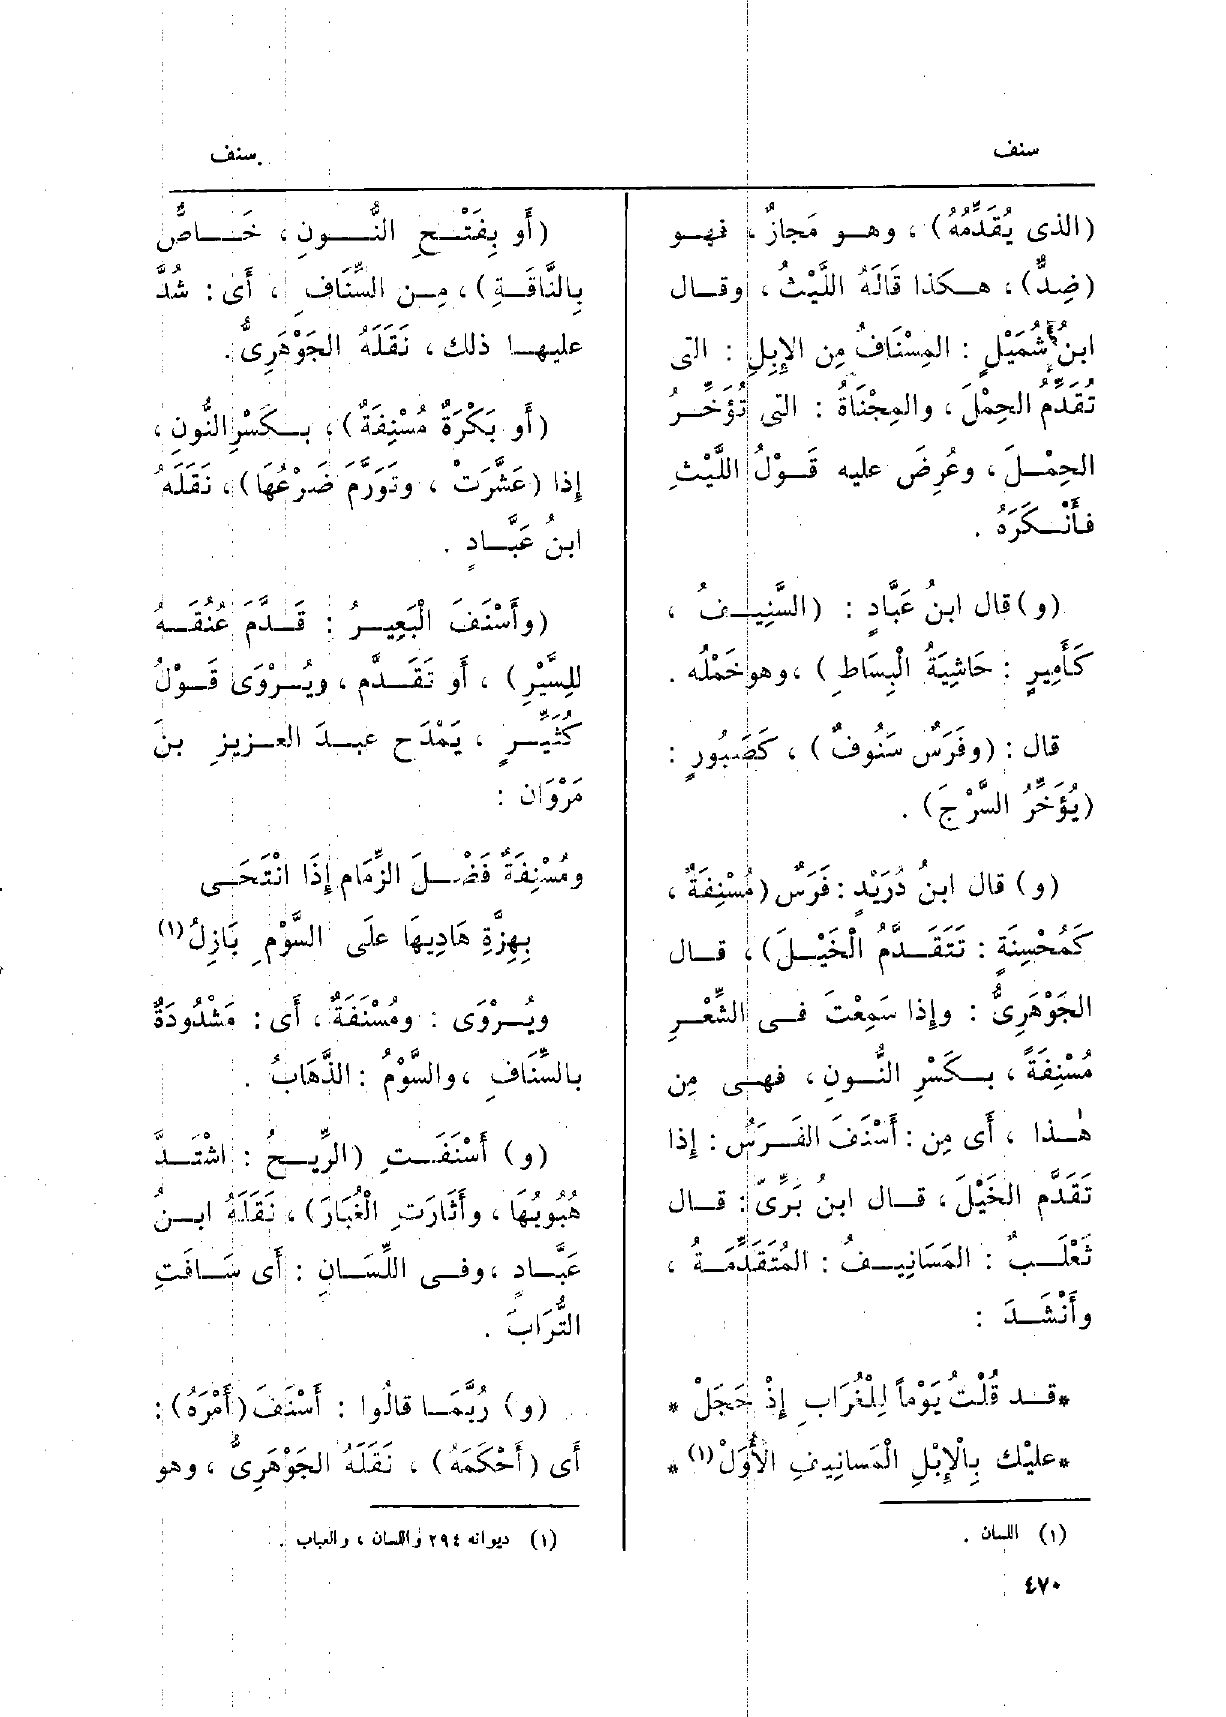 سنف
سنف
(الذى يُقَدِّمُهُ) ، وهـو مَجازٌ ، فهـو
(ضِدٌّ) ، هـكذا قَالَهُ اللَّيْثُ ، وقـال
ابنُ شُمَيْلٍ : المِسْنَافُ مِن الإِبِلِ : التى
تُقَدِّمُ الحِمْلَ ، والمِجْنَاةُ : التى تُؤَخِّـرُ
الحِمْـلَ ، وعُرِضَ عليه قَـوْلُ اللَّيْثِ
فأَنْـكَرَهُ .
(و) قال ابنُ عَبَّادٍ : (السَّنِيـفُ ،
كَأَمِيرٍ : حَاشِيَةُ الْبِسَاطِ) ، وهو خَمْلُه .
قال : (وفَرَسٌ سَنُوفٌ) ، كَصَبُورٍ :
(يُؤَخِّرُ السَّرْجَ) .
(و) قال ابنُ دُرَيْدٍ : فَرَسٌ (مُسْنِفَةٌ ،
كَمُحْسِنَةٍ : تَتَقَـدَّمُ الْخَيْـلَ) ، قـال
الجَوْهَرِىُّ : وإِذا سَمِعْتَ فـى الشِّعْـرِ
مُسْنِفَةً ، بـكَسْرِ النُّـونِ ، فهـى مِن
هٰـذا ، أَى مِن : أَسْنَفَ الفَرَسُ : إِذا
تَقَدَّم الخَيْلَ ، قـال ابنُ بَرِّىّ : قـال
ثَعْلَـبٌ : المَسَانِيـفُ : المُتَقَدِّمَـةُ ،
وأَنْشَـدَ :
*قـد قُلْتُ يَوْماً لِلْغُرَابِ إِذْ حَجَلْ *
*عليْك بِالْإِبْلِ الْمَسانِيفِ الأُوَلْ (١) *
(١) اللسان .
٤٧٠
(أَو بِفَتْـحِ النُّـونِ ، خَـاصٌّ
بِالنَّاقَـةِ) ، مِـن السِّنَافِ ، أَى : شُدَّ
عليهـا ذلك ، نَقَلَهُ الجَوْهَرِىُّ .
(أَو بَكْرَةٌ مُسْنِفَةٌ) ، بـكَسْرِ النُّونِ ،
إِذا (عَشَّرَتْ ، وتَوَرَّمَ ضَرْعُهَا) ، نَقَلَهُ
ابنُ عَبَّـادٍ .
(وأَسْنَفَ الْبَعِيـرُ : قَـدَّمَ عُنُقَـهُ
لِلسَّيْرِ) ، أَو تَقَـدَّم ، ويُـرْوَى قَـوْلُ
كُثَيِّـرٍ ، يَمْدَح عبـدَ العـزيزِ بـنَ
مَرْوَان :
ومُسْنِفَةٌ فَضْـلَ الزِّمَامِ إِذَا انْتَحَـى
بِهِزَّةِ هَادِيهَا علَى السَّوْمِ بَازِلُ (١)
ويُـرْوَى : ومُسْنَفَةٌ ، أَى : مَشْدُودَةٌ
بالسِّنَافِ ، والسَّوْمُ : الذَّهَابُ .
(و) أَسْنَفَـتِ (الرِّيـحُ : اشْتَـدَّ
هُبُوبُهَا ، وأَثَارَتِ الْغُبَارَ) ، نَقَلَهُ ابـنُ
عَبَّـادٍ ، وفـى اللِّسَـانِ : أَى سَـافَتِ
التُّرَابَ .
(و) رُبَّمَـا قالُوا : أَسْنَفَ (أَمْرَهُ) :
أَى (أَحْكَمَهُ) ، نَقَلَهُ الجَوْهَرِىُّ ، وهو
(١) ديوانه ٢٩٤ واللسان ، والعباب .